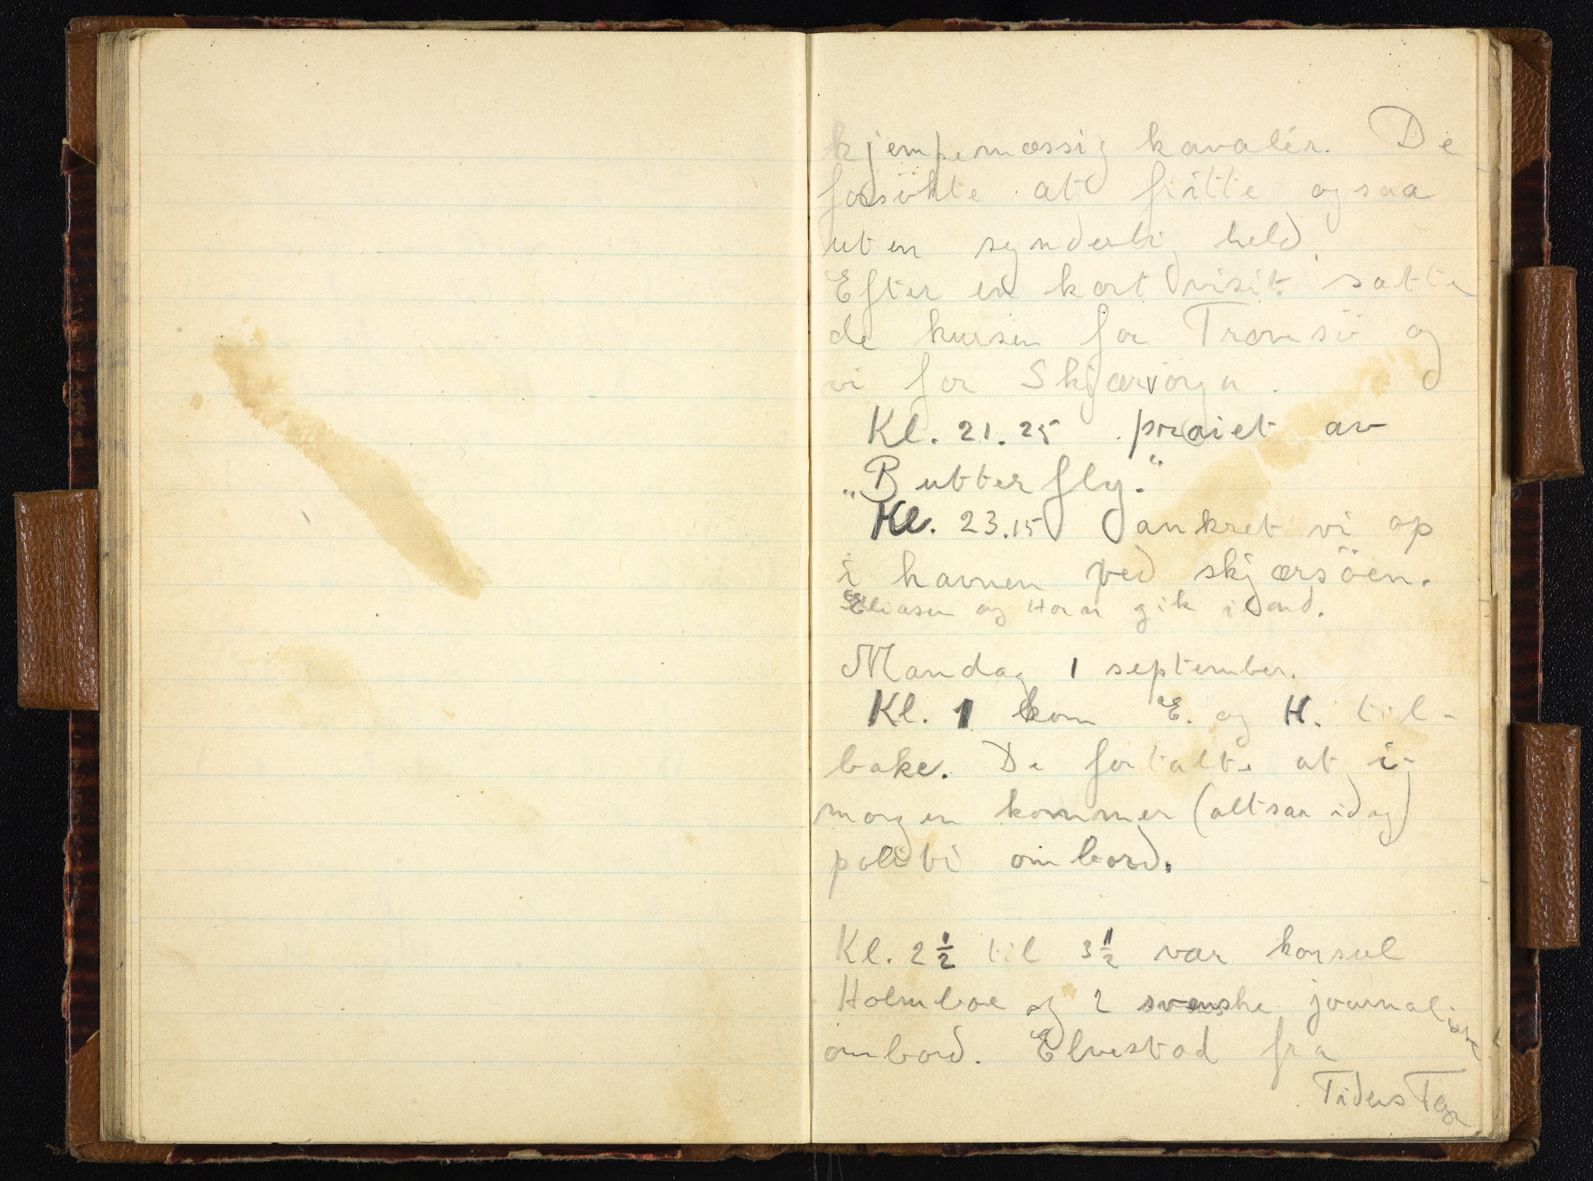 kjempemæssig kavalér. De
forsökte at fritte ogsaa
uten synderlig held.
Efter en kort visit satte
de kursen for Tromsö og
vi for Skjærvöya.
Kl. 21.25 praiet av
„Butterfly."
Kl. 23.15 ankret vi op
i havnen ved skjærsöen.
Eliasen og Horn gik iland.
Mandag 1 september.
Kl. 1 kom E. og H. til-
bake. De fortalte at i-
morgen kommer (altsaa idag)
politi ombord.
Kl. 2 1/2 til 3 1/2 var konsul
Holmboe og 2 svenske journalister
ombord. Elvestad fra
Tidens Tegn